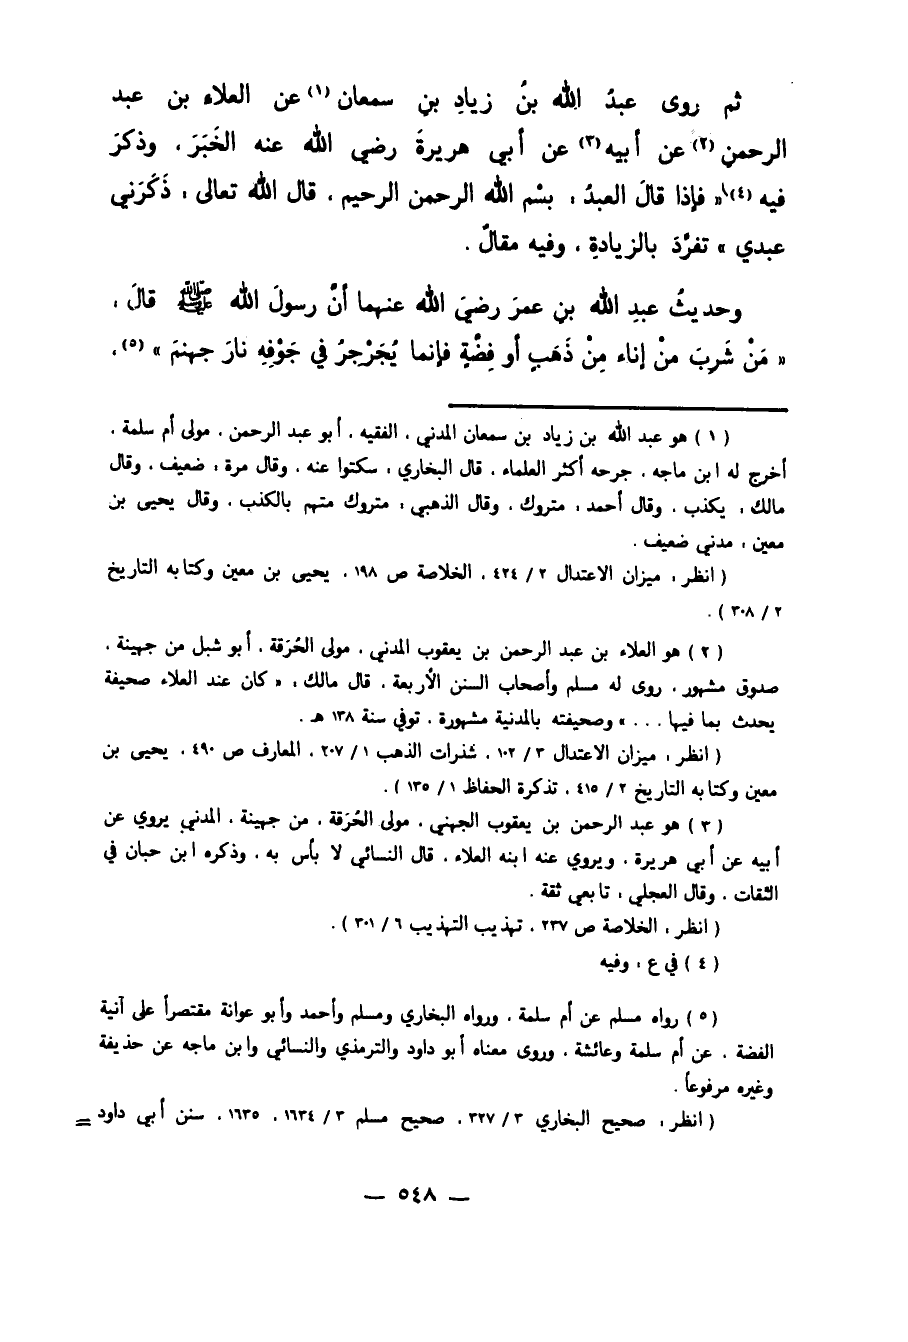 ثم روى عبدُ الله بنُ زيادِ بنِ سمعان (١) عن العلاء بن عبد
الرحمنِ (٢) عن أبيه (٣) عن أبي هريرةَ رضي الله عنه الخَبَرَ ، وذكرَ
فيه (٤) « فإذا قالَ العبدُ : بسْم الله الرحمن الرحيم ، قال الله تعالى : ذَكَرَني
عبدي » تفرَّدَ بالزيادةِ ، وفيه مقالٌ .
وحديثُ عبدِ الله بنِ عمرَ رضيَ الله عنهما أنَّ رسولَ الله ﷺ قالَ :
« مَنْ شَرِبَ منْ إناء مِنْ ذَهَبٍ أو فِضَّةٍ فإنما يُجَرْجِرُ في جَوْفِهِ نارَ جهنمَ » (٥) ،
( ١ ) هو عبد الله بن زياد بن سمعان المدني ، الفقيه ، أبو عبد الرحمن ، مولى أم سلمة ،
أخرج له ابن ماجه ، جرحه أكثر العلماء ، قال البخاري : سكتوا عنه ، وقال مرة : ضعيف ، وقال
مالك : يكذب ، وقال أحمد : متروك ، وقال الذهبي : متروك متهم بالكذب ، وقال يحيى بن
معين : مدني ضعيف .
( انظر : ميزان الاعتدال ٢ / ٤٢٤ ، الخلاصة ص ١٩٨ ، يحيى بن معين وكتابه التاريخ
٢ / ٣٠٨ ) .
( ٢ ) هو العلاء بن عبد الرحمن بن يعقوب المدني ، مولى الحُرَقة ، أبو شبل من جهينة ،
صدوق مشهور ، روى له مسلم وأصحاب السنن الأربعة ، قال مالك : « كان عند العلاء صحيفة
يحدث بما فيها ... » وصحيفته بالمدنية مشهورة ، توفي سنة ١٣٨ هـ .
( انظر : ميزان الاعتدال ٣ / ١٠٢ ، شذرات الذهب ١ / ٢٠٧ ، المعارف ص ٤٩٠ ، يحيى بن
معين وكتابه التاريخ ٢ / ٤١٥ ، تذكرة الحفاظ ١ / ١٣٥ ) .
( ٣ ) هو عبد الرحمن بن يعقوب الجهني ، مولى الحُرَقة ، من جهينة ، المدني يروي عن
أبيه عن أبي هريرة ، ويروي عنه ابنه العلاء ، قال النسائي لا بأس به ، وذكره ابن حبان في
الثقات ، وقال العجلي : تابعي ثقة .
( انظر : الخلاصة ص ٢٣٧ ، تهذيب التهذيب ٦ / ٣٠١ ) .
( ٤ ) في ع : وفيه
( ٥ ) رواه مسلم عن أم سلمة ، ورواه البخاري ومسلم وأحمد وأبو عوانة مقتصراً على آنية
الفضة ، عن أم سلمة وعائشة ، وروى معناه أبو داود والترمذي والنسائي وابن ماجه عن حذيفة
وغيره مرفوعاً .
( انظر : صحيح البخاري ٣ / ٣٢٧ ، صحيح مسلم ٣ / ١٦٣٤ ، ١٦٣٥ ، سنن أبي داود =
— ٥٤٨ —